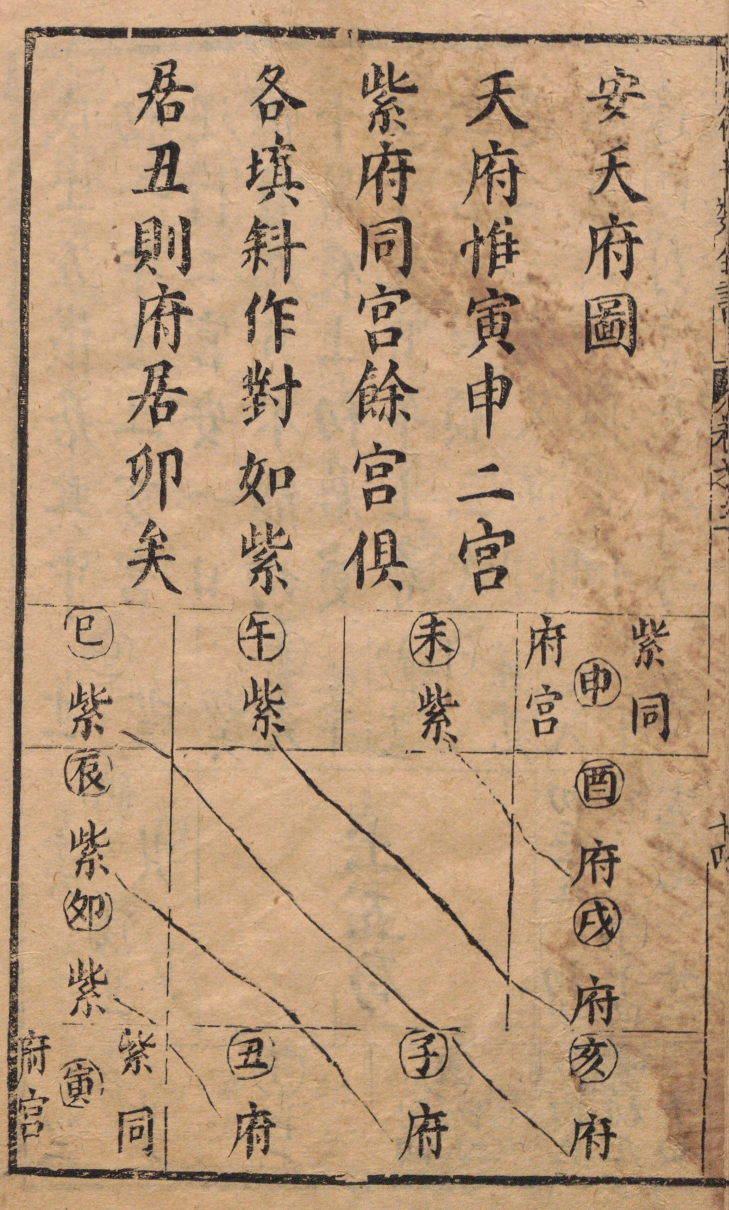 安天府圖
天府惟寅申二宮
紫府同宮餘宮俱
各填斜作對如紫
居丑則府居卯矣
紫同
申
府宮
未
紫
午
紫
巳
紫
酉
府
辰
紫
戌
府
卯
紫
亥
府
子
府
丑
府
紫同
寅
府宮